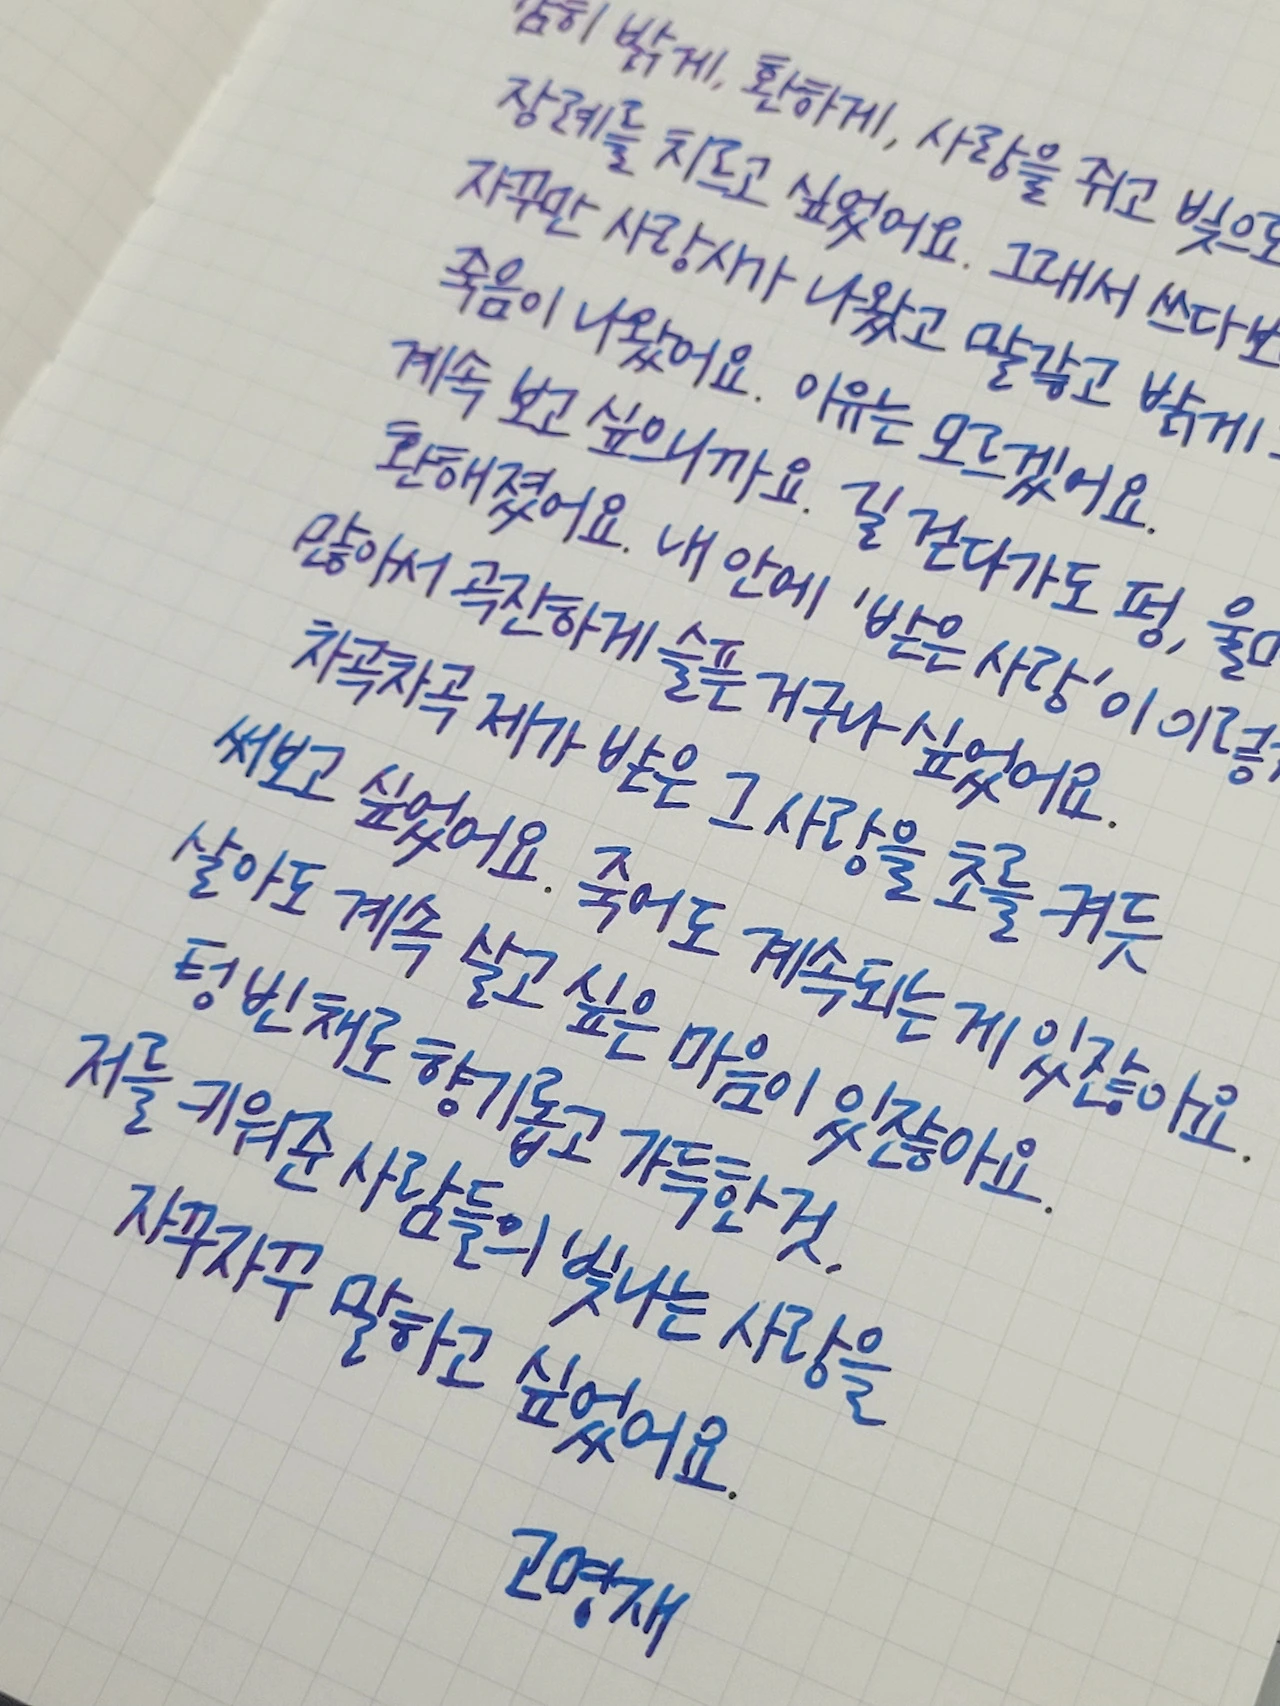 밝게, 환하게, 사랑을 쥐고
장례를 치르고 싶었어요. 그래서
자꾸만 사랑사가 나왔고 말갛고 밝게
죽음이 나왔어요. 이유는 모르겠어요.
계속 보고 싶으니까요. 길 걷다가도 펑,
환해졌어요. 내 안에 '받은 사랑'이
많아서 곡진하게 슬픈 거구나 싶었어요.
차곡차곡 제가 받은 그 사랑을 초를 켜듯
써보고 싶었어요. 죽어도 계속되는 게 있잖아요.
살아도 계속 살고 싶은 마음이 있잖아요.
텅 빈 채로 향기롭고 가득한 것.
저를 키워준 사람들의 빛나는 사랑을
자꾸자꾸 말하고 싶었어요.
고명재